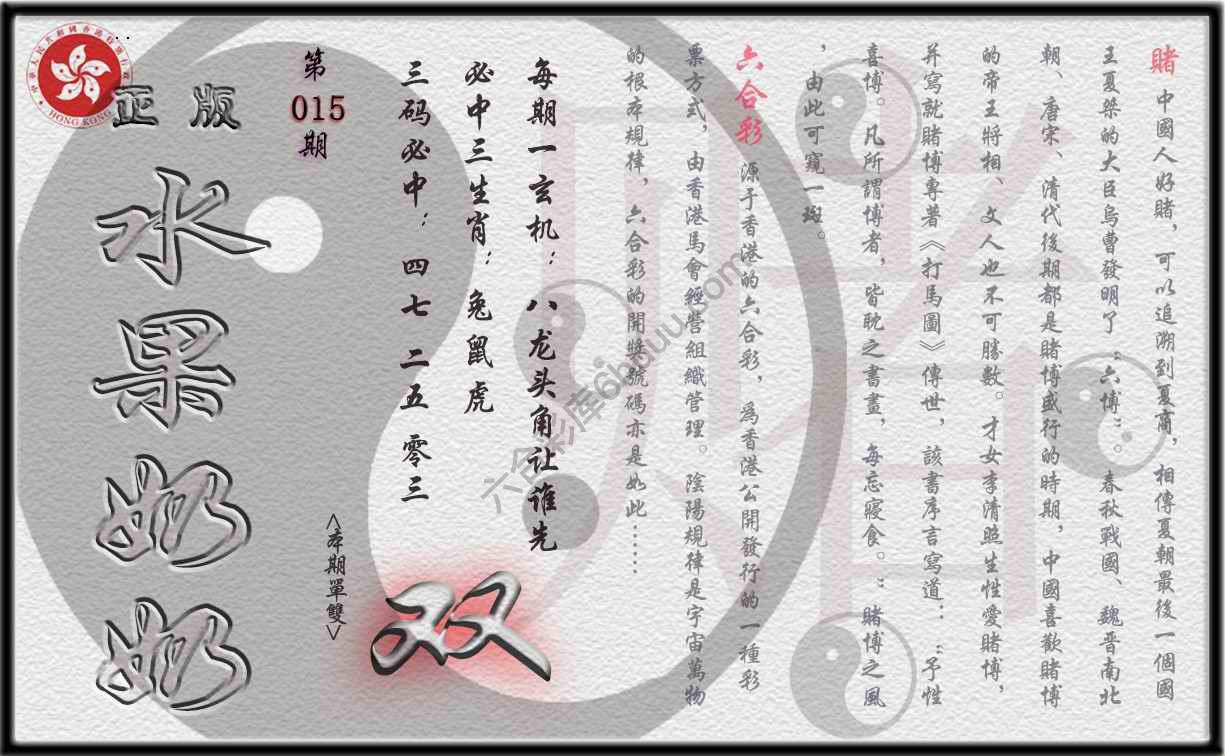 賭 中國人好賭，可以追溯到夏商，相傳夏朝最後一個國
王夏桀的大臣烏曹發明了“六博”。春秋戰國、魏晋南北
朝、唐宋、清代後期都是賭博盛行的時期，中國喜歡賭博
的帝王將相、文人也不可勝數。才女李清照生性愛賭博，
并寫就賭博專著《打馬圖》傳世，該書序言寫道：“予性
喜博。凡所謂博者，皆耽之書畫，每忘寢食。”賭博之風
，由此可窺一斑。
六合彩 源于香港的六合彩，為香港公開發行的一種彩
票方式，由香港馬會經營組織管理。陰陽規律是宇宙萬物
的根本規律，六合彩的開獎號碼亦是如此……
每期一玄机：八龙头角让谁先
必中三生肖：兔鼠虎
三码必中：四七 二五 零三
<本期單雙>
双
第
015
期
正版
水果奶奶
中華人民共和國香港特別行政區
HONG KONG
六合彩库6huuu.com